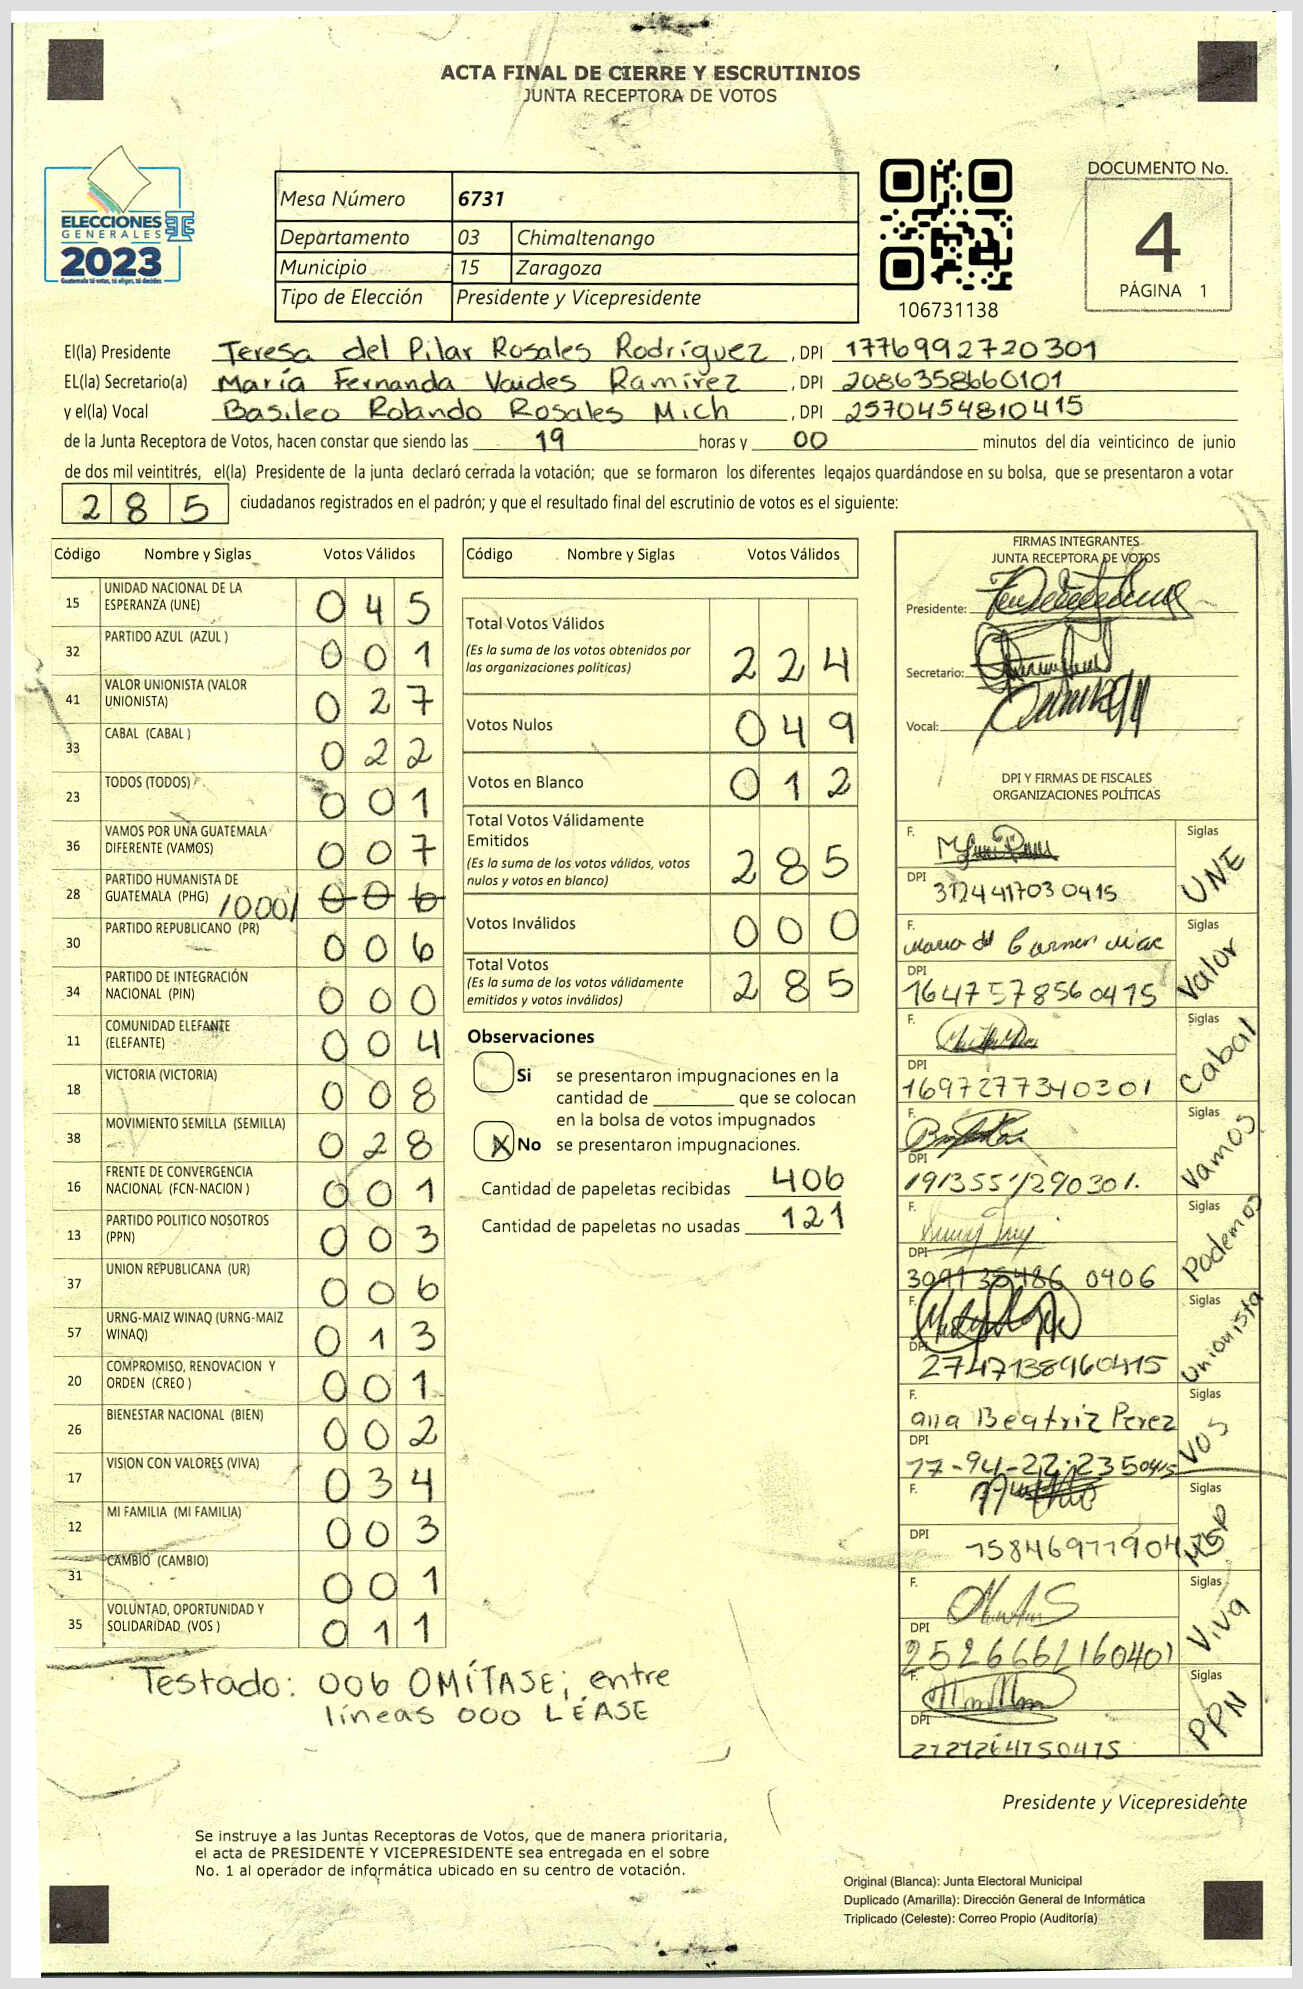 ACTA FINAL DE CIERRE Y ESCRUTINIOS
JUNTA RECEPTORA DE VOTOS
ELECCIONES
GENERALES
2023
Guatemala tú votas, tú eliges, tú decides
Mesa Número 6731
Departamento 03 Chimaltenango
Municipio 15 Zaragoza
Tipo de Elección Presidente y Vicepresidente
106731138
DOCUMENTO No.
4
PÁGINA 1
El(la) Presidente Teresa del Pilar Rosales Rodríguez , DPI 1776992720301
EL(la) Secretario(a) María Fernanda Valdes Ramírez , DPI 2086358660101
y el(la) Vocal Basileo Rolando Rosales Mich , DPI 2570454810415
de la Junta Receptora de Votos, hacen constar que siendo las 19 horas y 00 minutos del día veinticinco de junio
de dos mil veintitrés, el(la) Presidente de la junta declaró cerrada la votación; que se formaron los diferentes legajos guardándose en su bolsa, que se presentaron a votar
285 ciudadanos registrados en el padrón; y que el resultado final del escrutinio de votos es el siguiente:
Código Nombre y Siglas Votos Válidos
15 UNIDAD NACIONAL DE LA ESPERANZA (UNE) 045
32 PARTIDO AZUL (AZUL ) 001
41 VALOR UNIONISTA (VALOR UNIONISTA) 027
33 CABAL (CABAL ) 022
23 TODOS (TODOS) 001
36 VAMOS POR UNA GUATEMALA DIFERENTE (VAMOS) 007
28 PARTIDO HUMANISTA DE GUATEMALA (PHG) /000/ 006
30 PARTIDO REPUBLICANO (PR) 006
34 PARTIDO DE INTEGRACIÓN NACIONAL (PIN) 000
11 COMUNIDAD ELEFANTE (ELEFANTE) 004
18 VICTORIA (VICTORIA) 008
38 MOVIMIENTO SEMILLA (SEMILLA) 028
16 FRENTE DE CONVERGENCIA NACIONAL (FCN-NACION ) 001
13 PARTIDO POLITICO NOSOTROS (PPN) 003
37 UNION REPUBLICANA (UR) 006
57 URNG-MAIZ WINAQ (URNG-MAIZ WINAQ) 013
20 COMPROMISO, RENOVACION Y ORDEN (CREO ) 001
26 BIENESTAR NACIONAL (BIEN) 002
17 VISION CON VALORES (VIVA) 034
12 MI FAMILIA (MI FAMILIA) 003
31 CAMBIO (CAMBIO) 001
35 VOLUNTAD, OPORTUNIDAD Y SOLIDARIDAD (VOS ) 011
Testado: 006 OMÍTASE; entre
líneas 000 LÉASE
Código Nombre y Siglas Votos Válidos
Total Votos Válidos 224
(Es la suma de los votos obtenidos por
las organizaciones políticas)
Votos Nulos 049
Votos en Blanco 012
Total Votos Válidamente
Emitidos 285
(Es la suma de los votos válidos, votos
nulos y votos en blanco)
Votos Inválidos 000
Total Votos 285
(Es la suma de los votos válidamente
emitidos y votos inválidos)
Observaciones
Si se presentaron impugnaciones en la
cantidad de ________ que se colocan
en la bolsa de votos impugnados
X No se presentaron impugnaciones.
Cantidad de papeletas recibidas 406
Cantidad de papeletas no usadas 121
FIRMAS INTEGRANTES
JUNTA RECEPTORA DE VOTOS
Presidente:
Secretario:
Vocal:
DPI Y FIRMAS DE FISCALES
ORGANIZACIONES POLÍTICAS
F. Siglas UNE
DPI 3124417030415
F. Maria del Carmen Siglas Valor
DPI 1647578560415
F. Siglas Cabal
DPI 1697277340301
F. Siglas Vamos
DPI 1913551290301.
F. Siglas Podemos
DPI 0406
F. Siglas Unionista
DPI 2747138960415
F. ana Beatriz Perez Siglas VOS
DPI 17-94-22-235 0415
F. Siglas
DPI
F. Siglas Viva
DPI 2526662160401
F. Siglas PPN
DPI
Presidente y Vicepresidente
Se instruye a las Juntas Receptoras de Votos, que de manera prioritaria,
el acta de PRESIDENTE Y VICEPRESIDENTE sea entregada en el sobre
No. 1 al operador de informática ubicado en su centro de votación.
Original (Blanca): Junta Electoral Municipal
Duplicado (Amarilla): Dirección General de Informática
Triplicado (Celeste): Correo Propio (Auditoría)